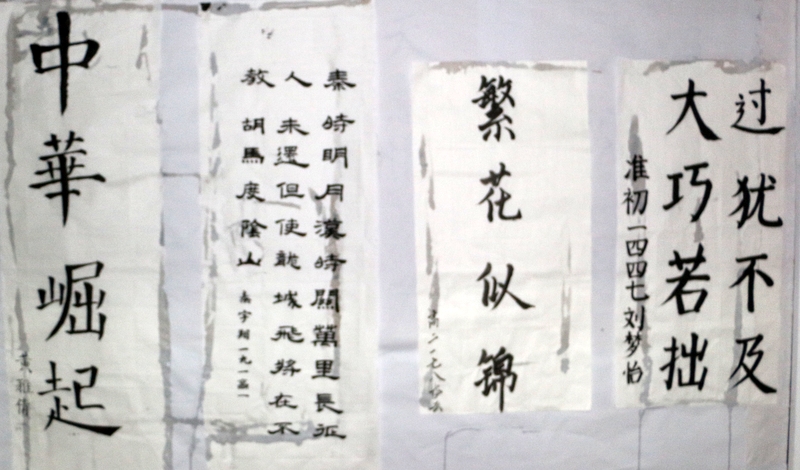 过犹不及
大巧若拙
准初一四四七刘梦怡
繁花似锦
高二一七八
秦時明月漢時關萬里長征
人未還但使龍城飛將在不
教胡馬度陰山
中華崛起
黄雅倩